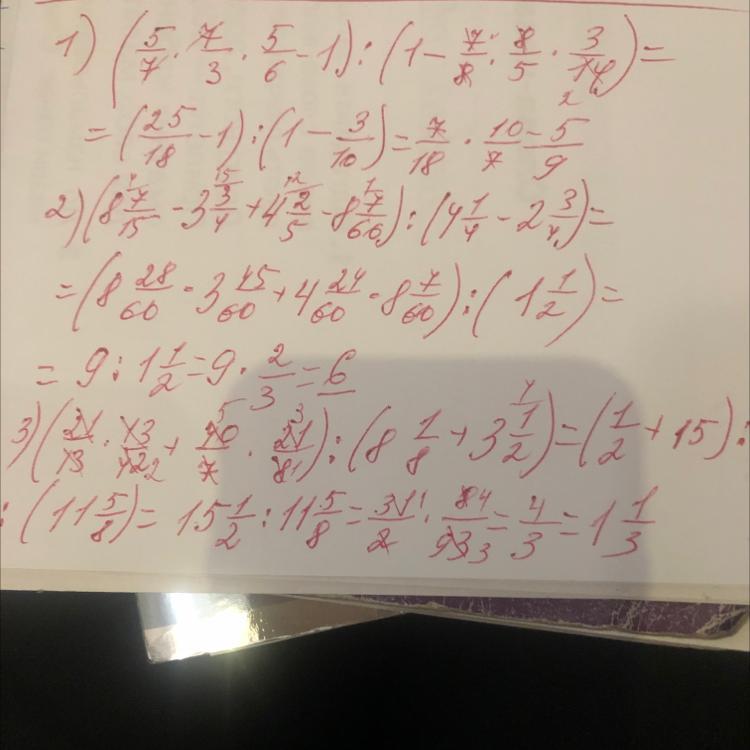 1) (5/7 · 7/3 · 5/6 - 1) : (1 - 7/8 · 8/5 · 3/14) =
= (25/18 - 1) : (1 - 3/10) = 7/18 · 10/7 = 5/9
2) (8 7/15 - 3 3/4 + 4 2/5 - 8 7/60) : (4 1/4 - 2 3/4) =
= (8 28/60 - 3 45/60 + 4 24/60 - 8 7/60) : (1 1/2) =
= 9 : 1 1/2 = 9 · 2/3 = 6
3) (21/13 · 13/42 + 10/7 · 21/81) : (8 1/8 + 3 1/2) = (1/2 + 15) :
: (11 5/8) = 15 1/2 : 11 5/8 = 31/2 · 8/93 = 4/3 = 1 1/3